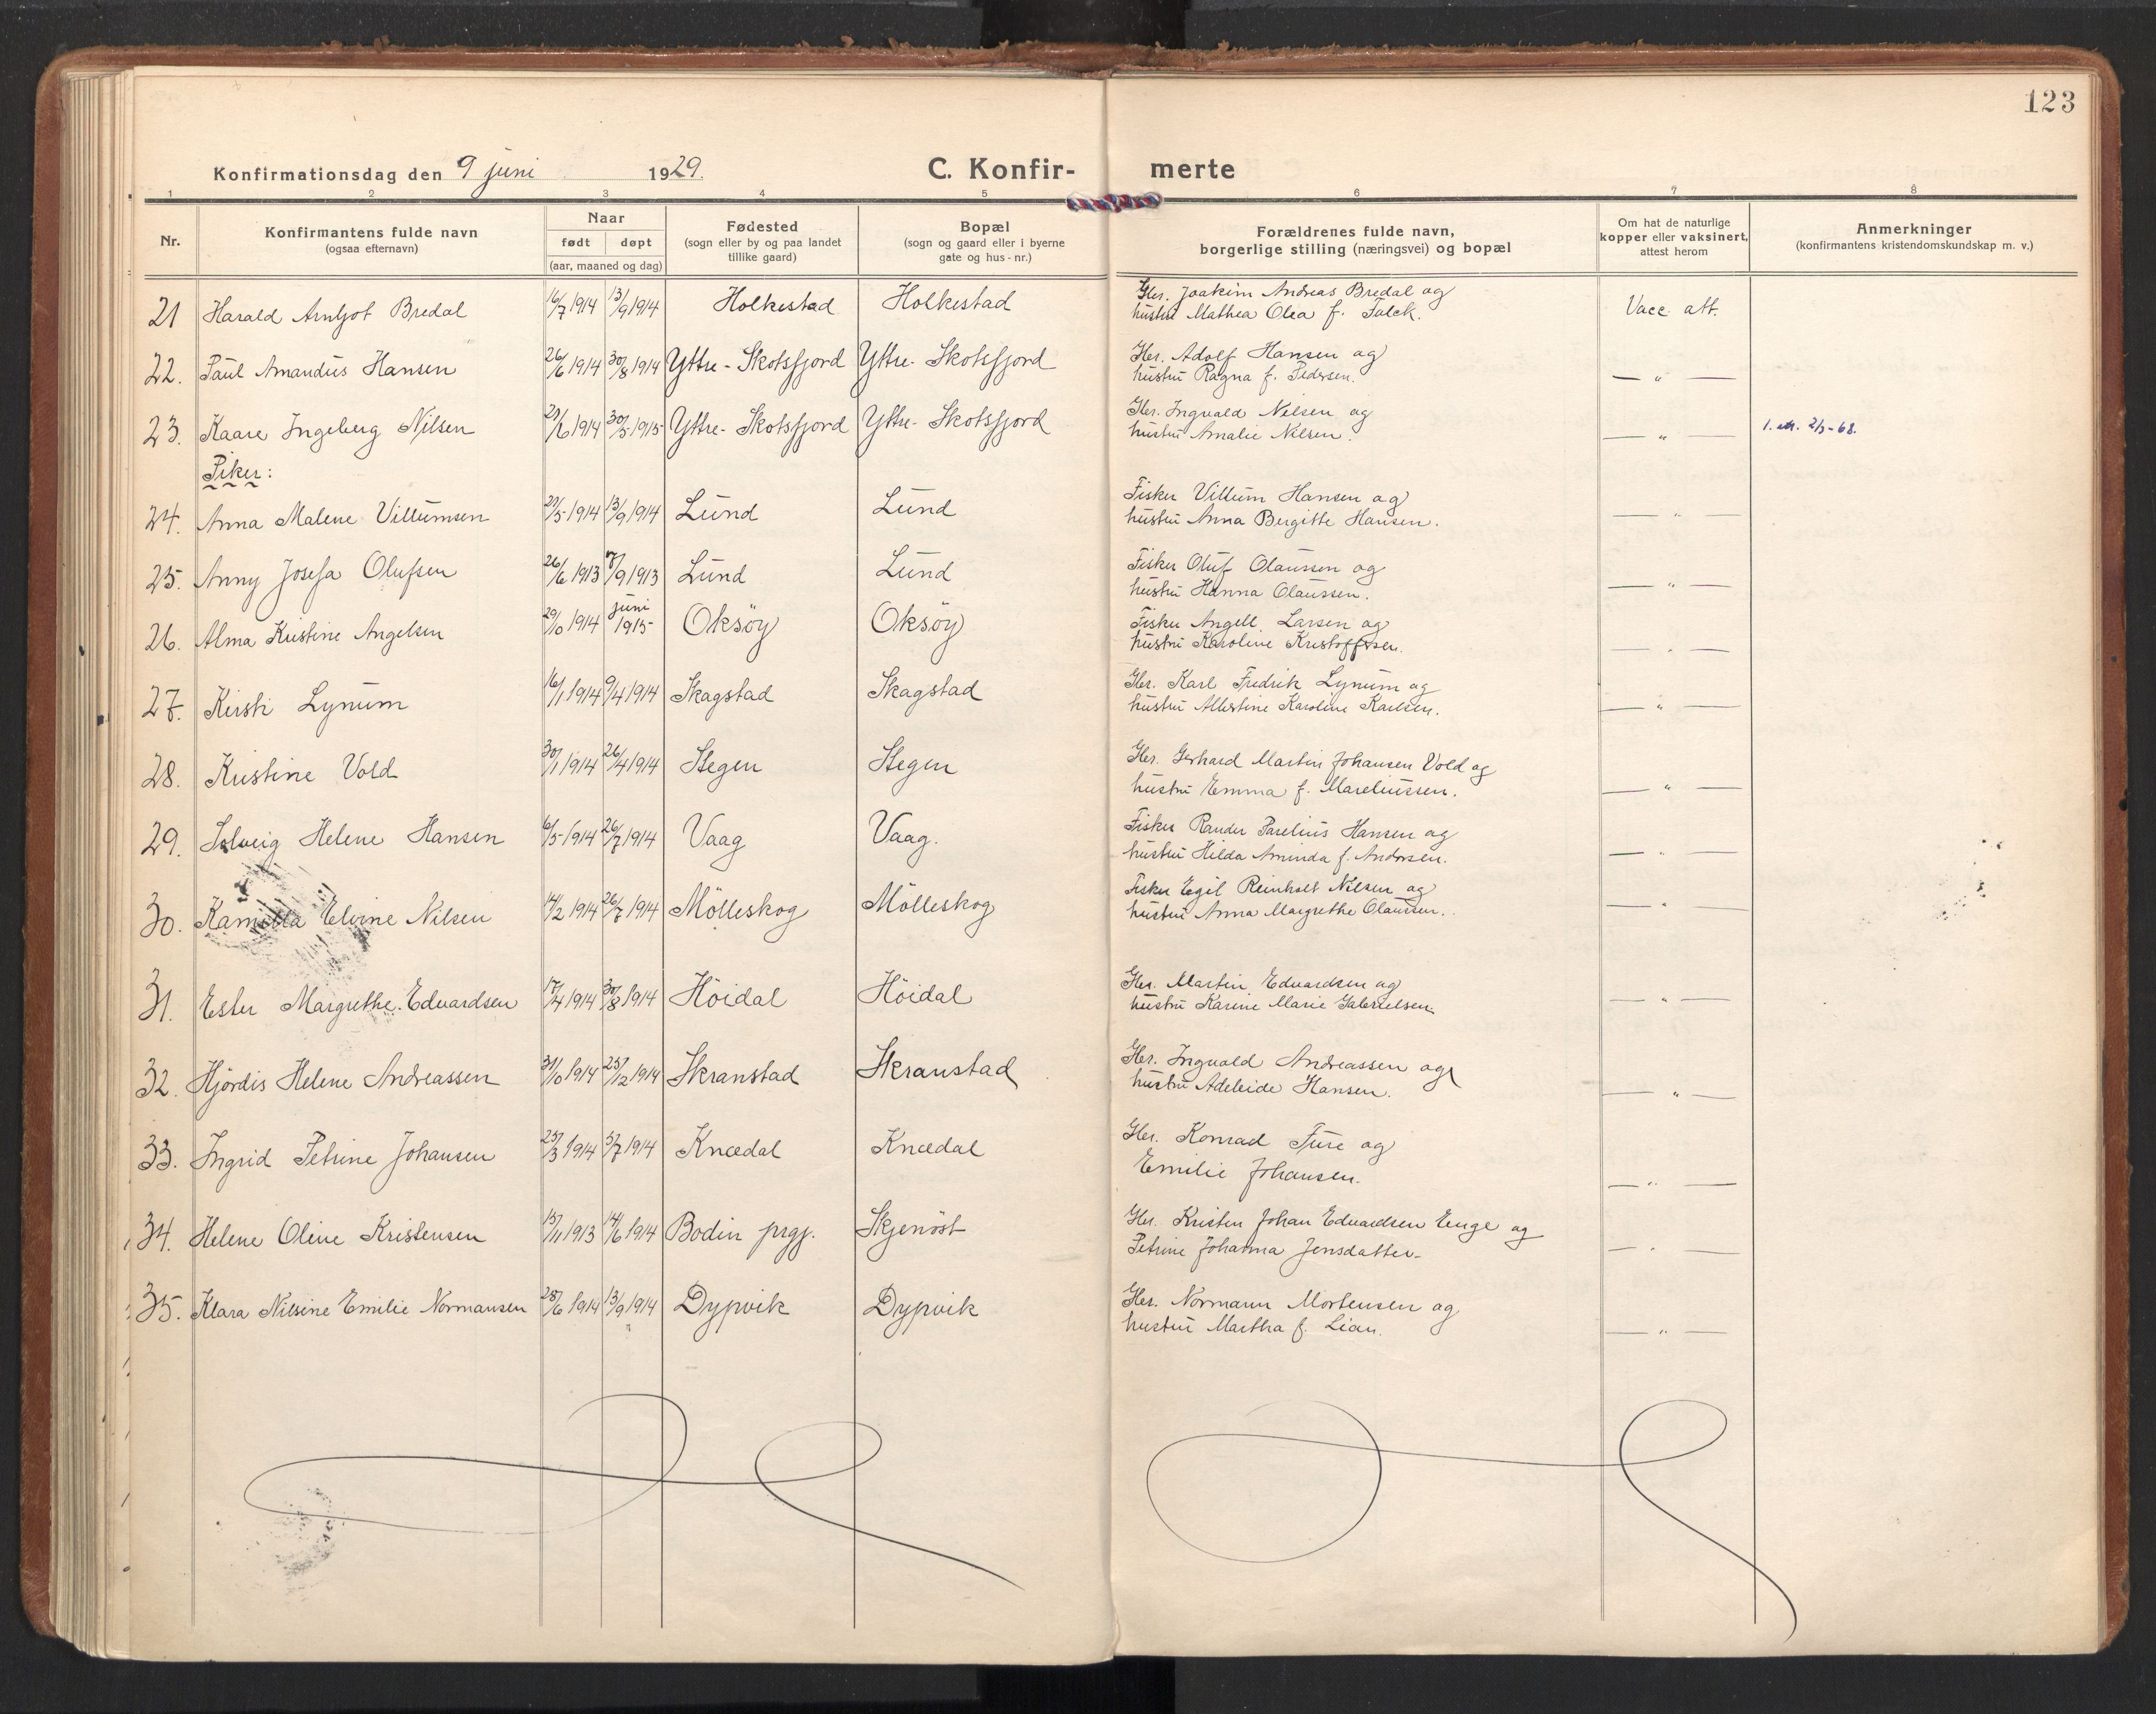 123
Konfirmationsdag den 9 juni 1929.
C. Konfir- merte
1 2 3 4 5 6 7 8
Nr.
Konfirmantens fulde navn
(ogsaa efternavn)
Naar
født døpt
(aar, maaned og dag)
Fødested
(sogn eller by og paa landet
tillike gaard)
Bopæl
(sogn og gaard eller i byerne
gate og hus-nr.)
Forældrenes fulde navn,
borgerlige stilling (næringsvei) og bopæl
Om hat de naturlige
kopper eller vaksinert,
attest herom
Anmerkninger
(konfirmantens kristendomskundskap m. v.)
21 Harald Arnljot Bredal 16/7 1914 13/9 1914 Holkestad Holkestad Gbr. Joakim Andreas Bredal og
hustru Mathea Olea f. Falck. Vacc. att.
22. Paul Amandus Hansen 26/6 1914 30/8 1914 Yttre-Skotsfjord Yttre-Skotsfjord Gbr. Adolf Hansen og
hustru Ragna f. Pedersen. — " —
23. Kaare Ingeberg Nilsen 29/6 1914 30/5 1915 Yttre-Skotsfjord Yttre-Skotsfjord Gbr. Ingvald Nilsen og
hustru Amalie Nilsen. — " — 2/3-68.
Piker:
24. Anna Malene Villumsen 29/5 1914 13/9 1914 Lund Lund Fisker Villum Hansen og
hustru Anna Bergitte Hansen. — " —
25. Anny Josefa Olufsen 26/6 1913 7/9 1913 Lund Lund Fisker Oluf Olaussen og
hustru Hanna Olaussen. — " —
26. Alma Kristine Angelsen 29/10 1914 juni 1915 Oksöy Oksöy Fisker Angell Larsen og
hustru Karoline Kristoffersen. — " —
27. Kirsti Lynum 16/1 1914 9/4 1914 Skagstad Skagstad Gbr. Karl Fredrik Lynum og
hustru Albertine Karoline Karlsen. — " —
28. Kristine Vold 30/1 1914 26/4 1914 Stegen Stegen Gbr. Gerhard Martin Johansen Vold og
hustru Emma f. Mareliussen. — " —
29. Solveig Helene Hansen 6/5 1914 26/7 1914 Vaag Vaag. Fisker Rander Parelius Hansen og
hustru Hilda Aminda f. Andersen. — " —
30. Kamilla Elvine Nilsen 14/2 1914 26/7 1914 Mölleskog Mölleskog Fisker Egil Reinholt Nilsen og
hustru Anna Margrethe Olaussen. — " —
31. Ester Margrethe Edvardsen 17/4 1914 30/8 1914 Höidal Höidal Gbr. Martin Edvardsen og
hustru Karine Marie Gabrielsen. — " —
32. Hjördis Helene Andreassen 31/10 1914 25/12 1914 Skranstad Skranstad Gbr. Ingvald Andreassen og
hustru Adeleide Hansen. — " —
33. Ingrid Petrine Johansen 25/3 1914 5/7 1914 Knædal Knædal Gbr. Konrad Fure og
Emilie Johansen. — " —
34. Helene Oline Kristensen 15/11 1913 14/6 1914 Bodin prgj. Skjenöst Gbr. Kristen Johan Edvardsen Enge og
Petrine Johanna Jensdatter — " —
35. Klara Nilsine Emilie Normansen 28/6 1914 13/9 1914 Dypvik Dypvik Gbr. Normann Mortensen og
hustru Martha f. Lian. — " —